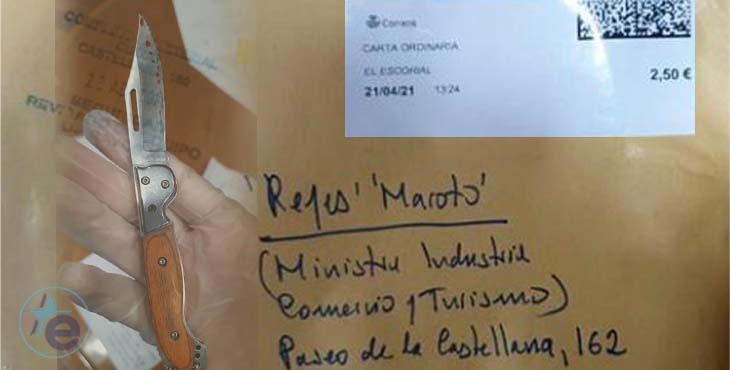 Correos
CARTA ORDINARIA
EL ESCORIAL
21/04/21 13:24
2,50 €
'Reyes' 'Maroto'
(Ministra Industria
Comercio y Turismo)
Paseo de la Castellana, 162
e